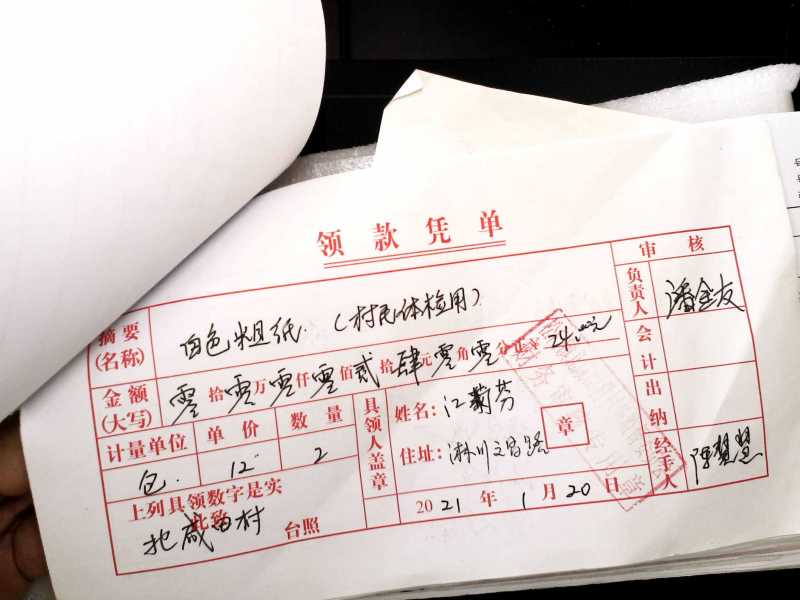 领款凭单
审核
摘要(名称) 白色粗纸.(村民体检用)
负责人 潘金友
金额(大写) 零拾零万零仟零佰贰拾肆元零角零分正 24.00元
会计
计量单位 单价 数量
具领人盖章
姓名:江菊芬
出纳
包. 12 2
住址:淋川文昌路
章
经手人 陈慧慧
上列具领数字是实
此致
2021年1月20日
台照